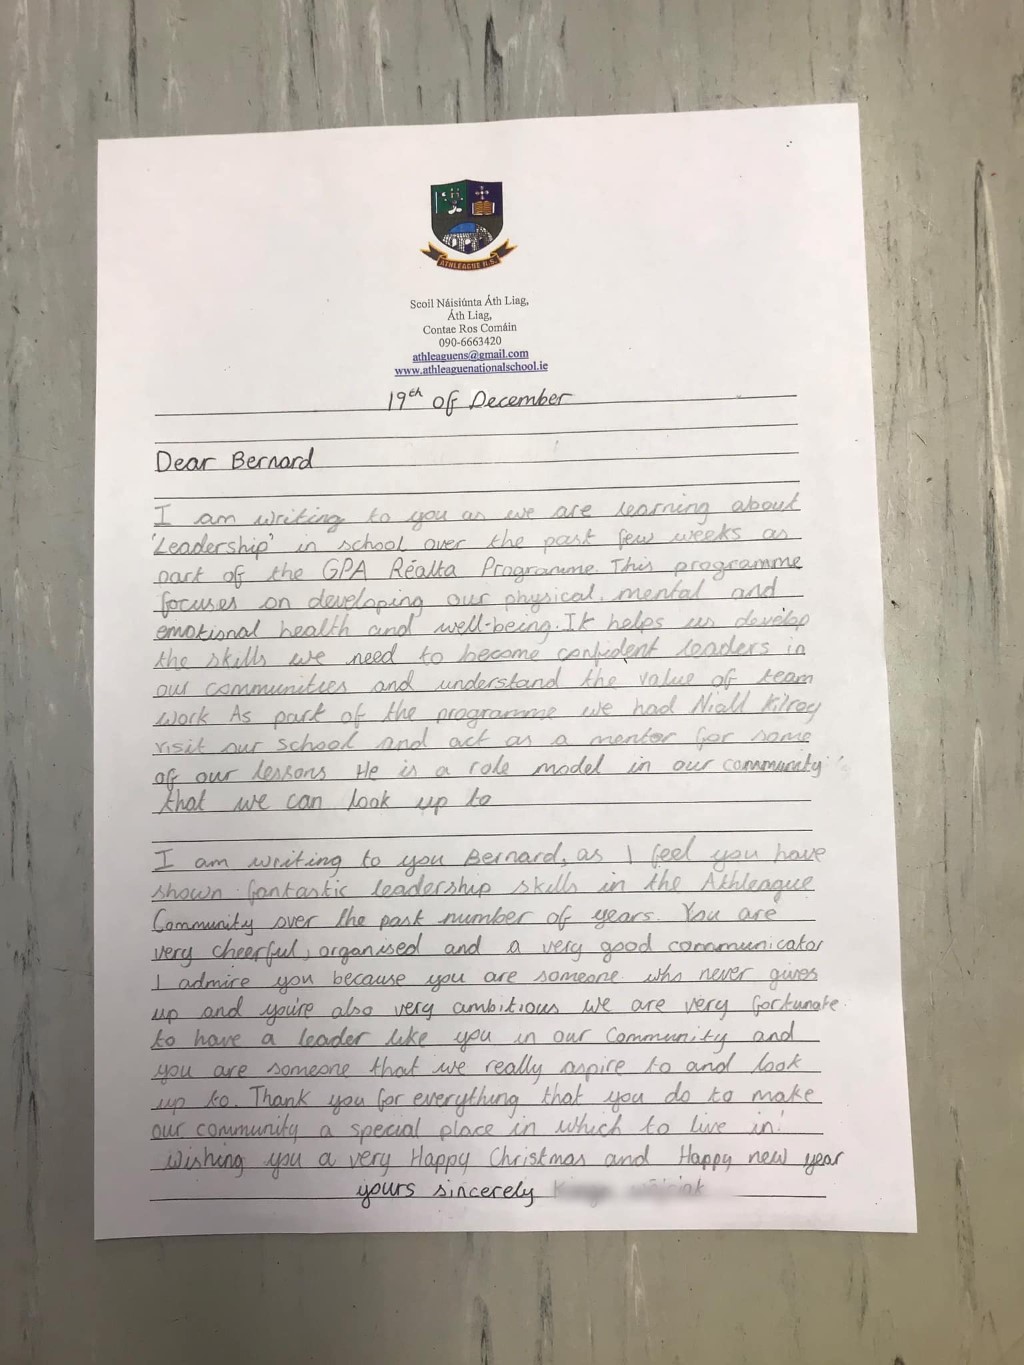 ATHLEAGUE N.S.
Scoil Náisiúnta Áth Liag,
Áth Liag,
Contae Ros Comáin
090-6663420
athleaguens@gmail.com
www.athleaguenationalschool.ie
19th of December
Dear Bernard
I am writing to you as we are learning about
'Leadership' in school over the past few weeks as
part of the GPA Réalta Programme. This programme
focuses on developing our physical, mental and
emotional health and well-being. It helps us develop
the skills we need to become confident leaders in
our communities and understand the value of team
work As part of the programme we had Niall Kilroy
visit our school and act as a mentor for some
of our lessons He is a role model in our community
that we can look up to
I am writing to you Bernard, as I feel you have
shown fantastic leadership skills in the Athleague
Community over the past number of years. You are
very cheerful, organised and a very good communicator
I admire you because you are someone who never gives
up and you're also very ambitious we are very fortunate.
to have a leader like you in our community and
you are someone that we really aspire to and look
up to. Thank you for everything that you do to make
our community a special place in which to live in!
Wishing you a very Happy Christmas and Happy new year
yours sincerely